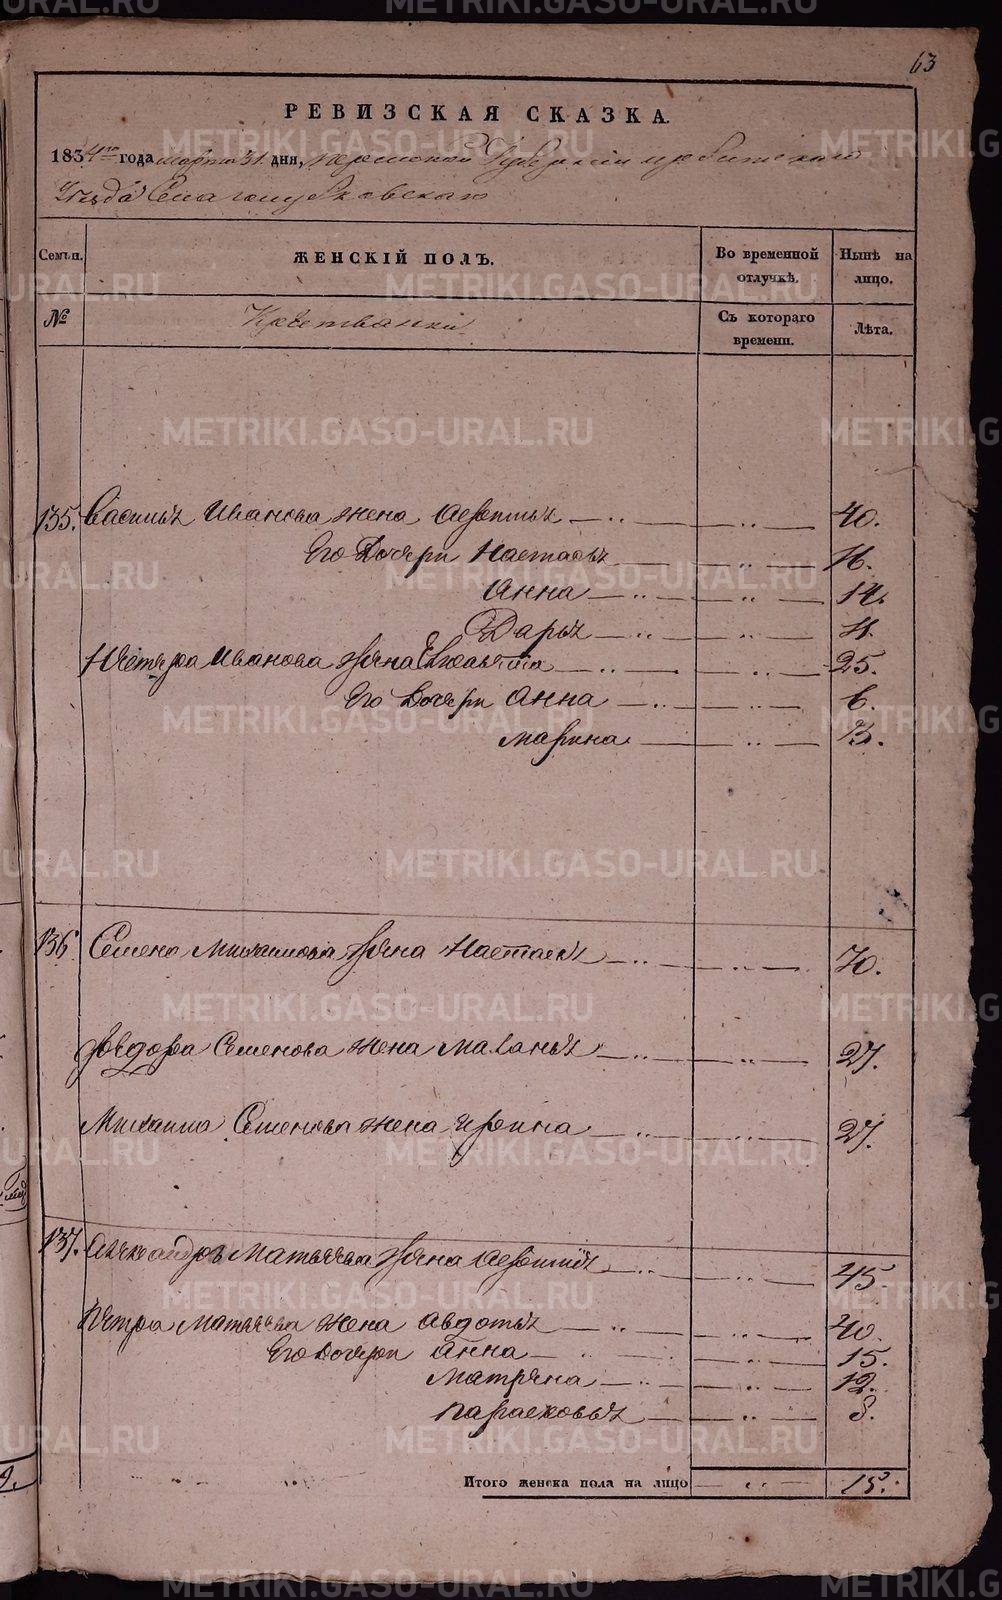 63
РЕВИЗСКАЯ СКАЗКА.
1834го года марта 31 дня, Пермской Губернии Ирбитскаго
Уезда Села
Семьи. ЖЕНСКІЙ ПОЛЪ. Во временной отлучкѣ. Нынѣ на лицо.
№ Крестьянки Съ котораго времени. Лѣта.
135. Василья Иванова жена — 40.
Его Дочери Настасья 16.
Анна 14.
Дарья
Петра Иванова жена 25.
Его Дочери Анна 6.
Марина 3.
136 Семена Михаилова жена Настасья 70.
Федора Семенова жена Маланья 27.
Михаила Семенова жена Ирина 27.
137. Александра Матвеева жена 45.
Петра Матвеева жена Авдотья 40.
Его Дочери Анна 15.
Матрена 12.
Парасковья 8.
Итого женска пола на лицо 15.
METRIKI.GASO-URAL.RU